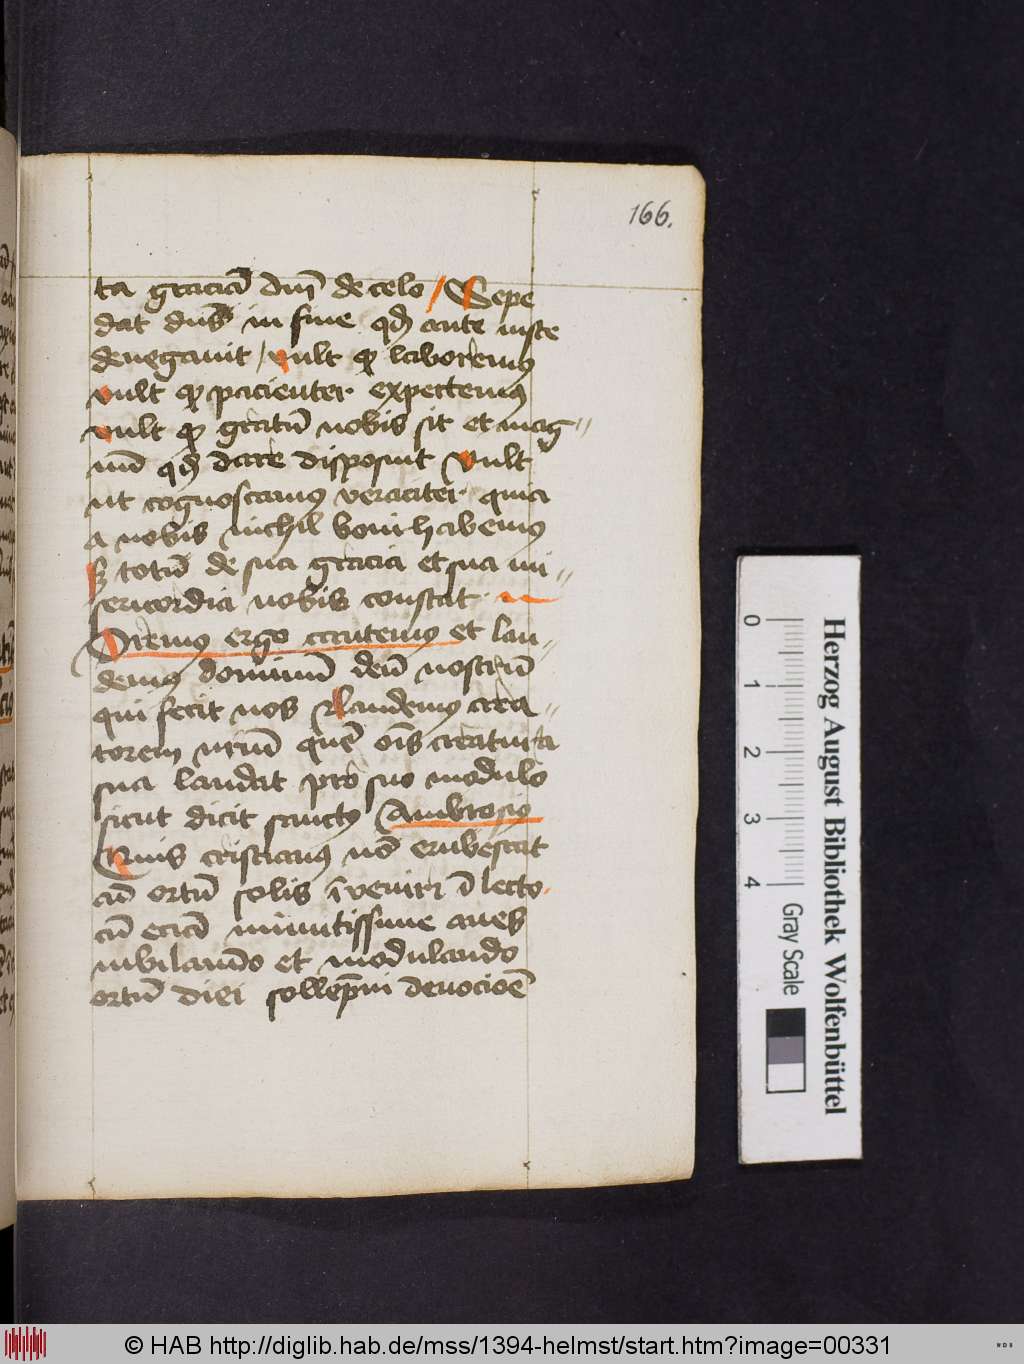 166.
ta graciā dn̄i de celo / Sepe
dat dn̄s in fine qd̄ ante iuste
denegauit / vult ꝙ laboremꝰ
vult ꝙ pacienter expectemꝰ
vult ꝙ gratū nobis sit et mag〃
nū qd̄ dare disposuit vult
ut cognoscamꝰ veraciter quia
a nobis nichil boni habemꝰ
sꝫ totū de sua gracia et sua mi〃
sericordia nobis constat
Oremꝰ ergo cantemꝰ et lau〃
demꝰ dominū deū nostrū
qui fecit nos laudemꝰ crea〃
torem nr̄um quē oīs creatura
sua laudat pro suo modulo
sicut dicit sanctꝰ Ambrosiꝰ
Quis cristianꝰ nō erubescat
ad ortū solis īveniri ī lecto
cū eciā minutissime aues
iubilando et modulando
ortū diei sollēpni deuocioē
Herzog August Bibliothek Wolfenbüttel
0 1 2 3 4 Gray Scale
© HAB http://diglib.hab.de/mss/1394-helmst/start.htm?image=00331